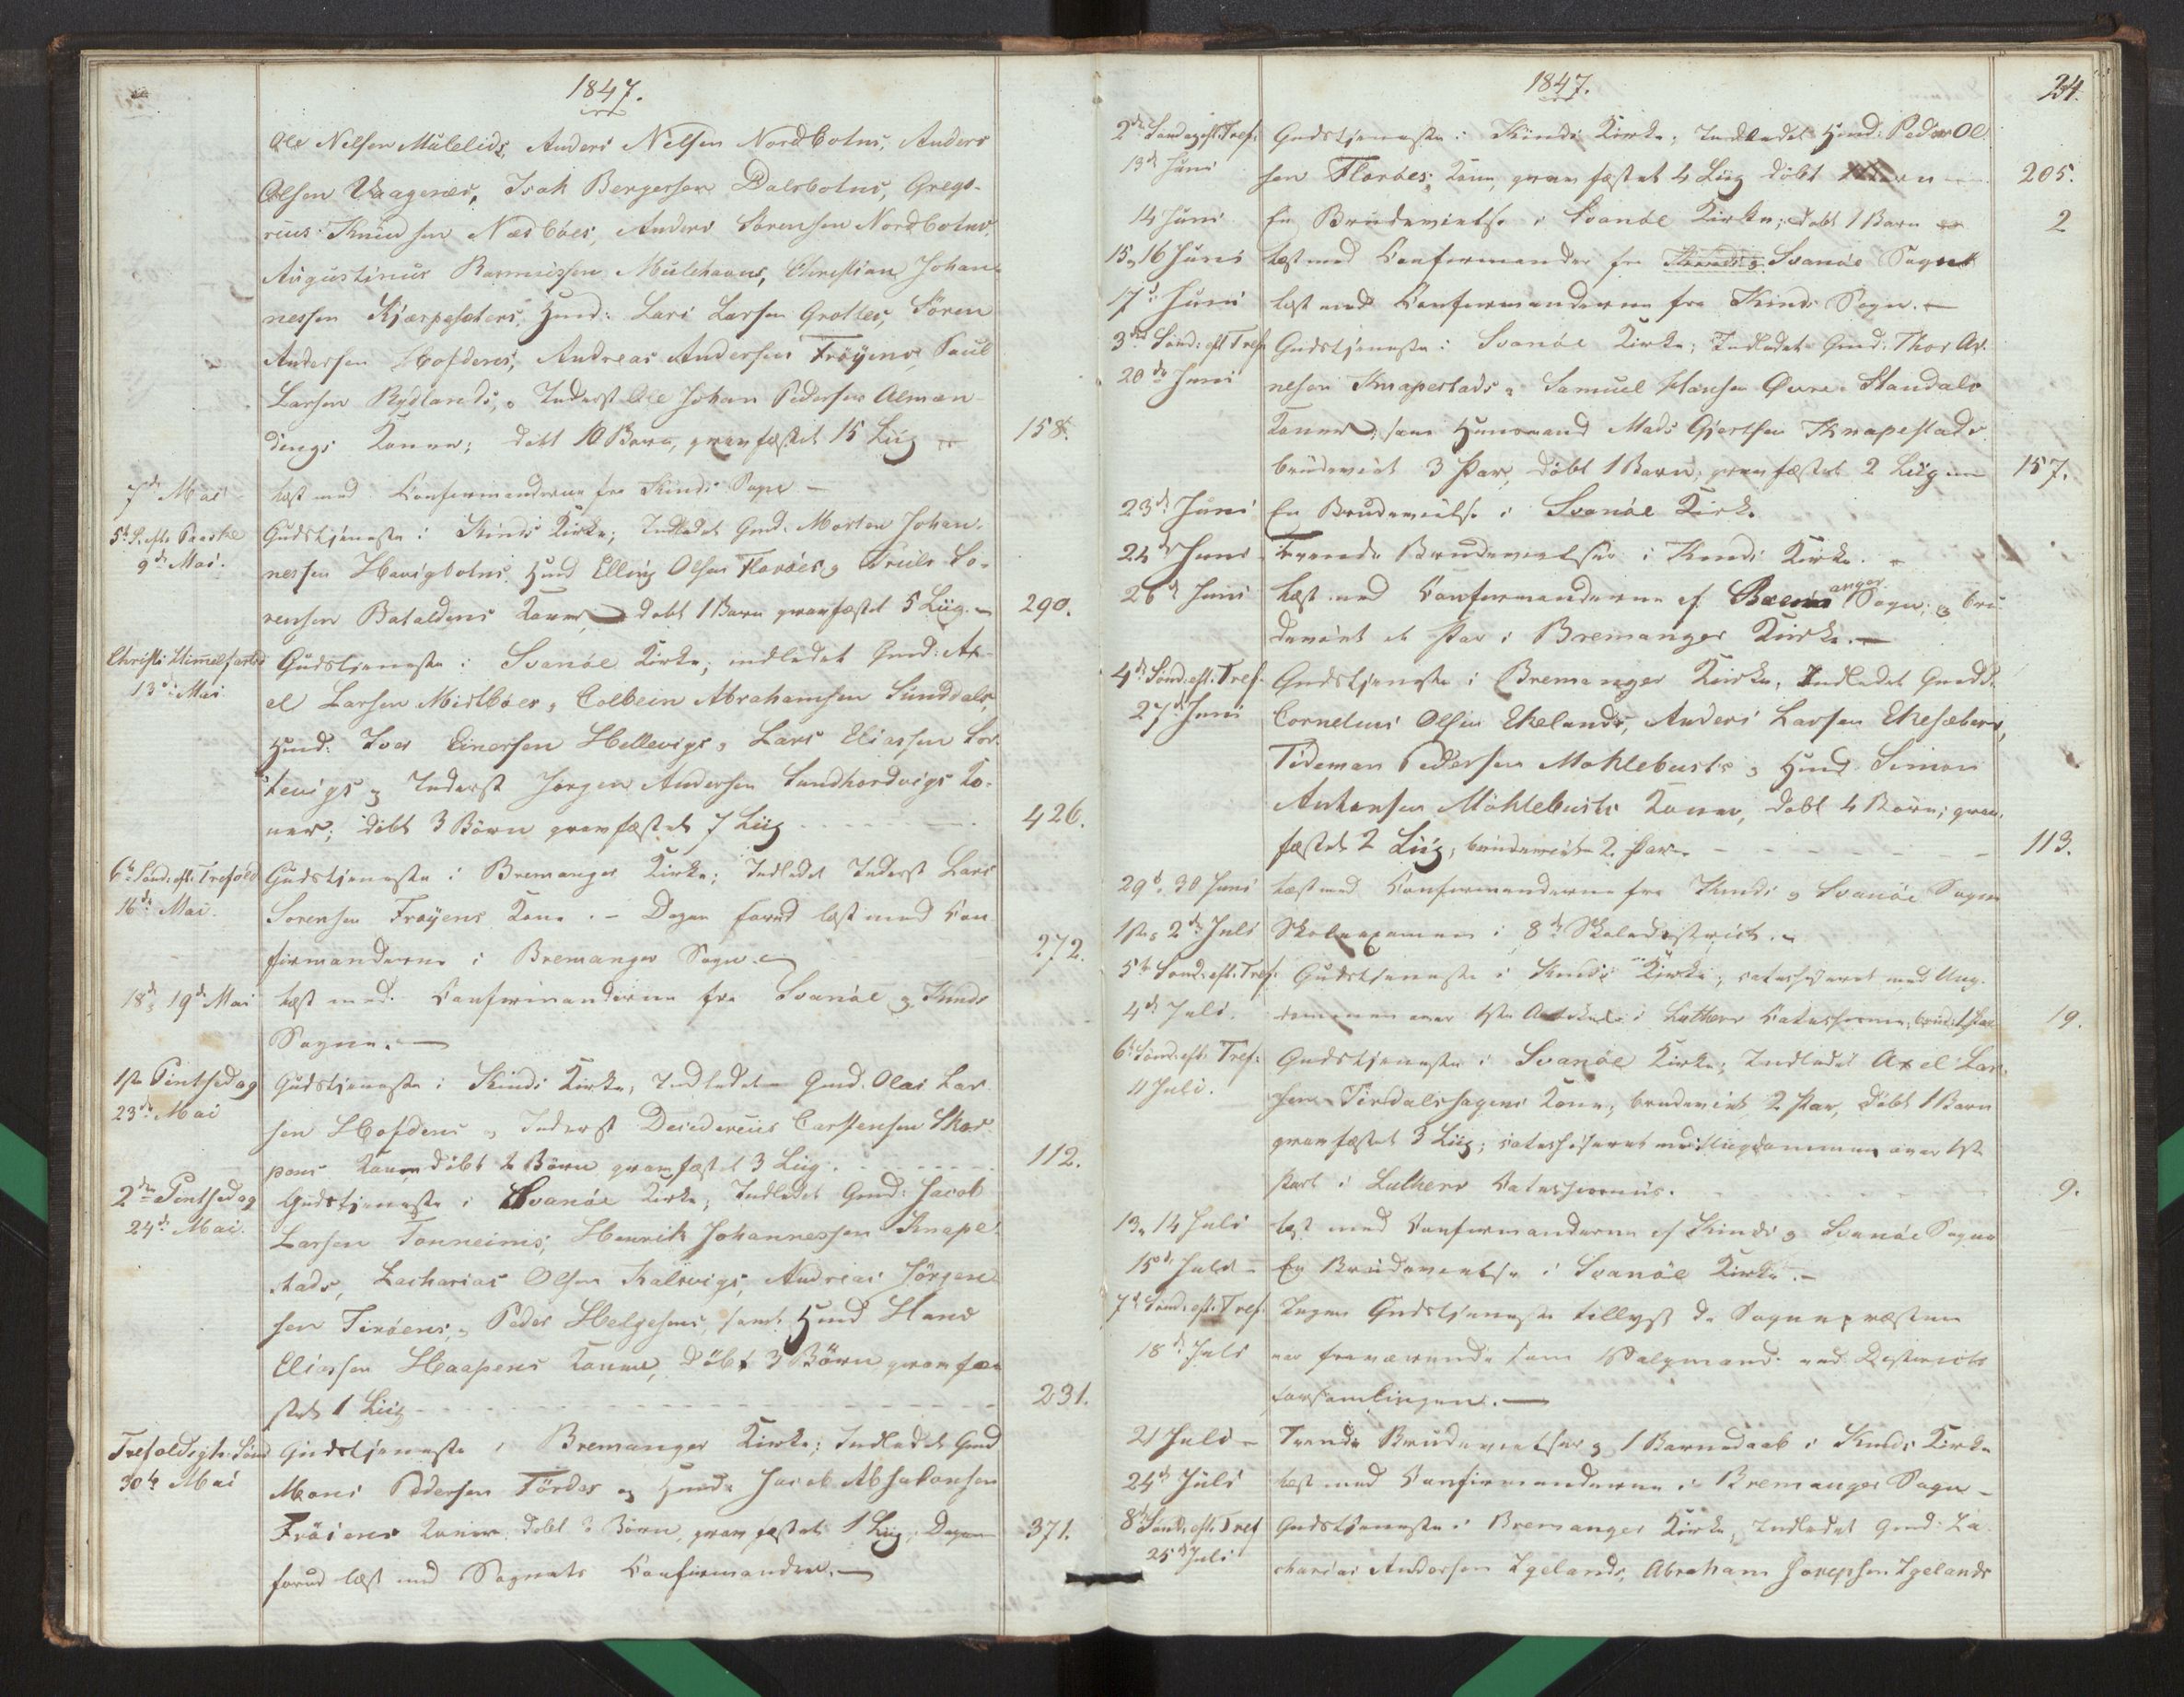 1847.
Ole Nilsen Mulelids, Anders Nilsen Nordbotns, Anders
Olsen Vaagenæs, Isak Bergersen Dalsbotns, Grego-
rius Knudsen Næsböes, Anders Sörensen Nordbotns,
Augustinus Rasmussen Mulehavns, Christian Johan-
nessen Kjærgesæters, Huusmd: Lars Larsen Grotles, Sören
Andersen Hofdens, Andreas Andersen Fröyens, Paul
Larsen Rydlands, Inderst Ole Johan Pedersen Alman-
dings Koner; døbt 10 Børn, gravfæstet 15 Liig 158.
7de Mai Læst med Confirmanderne fra Kinds Sogn —
5te S. eft. Paaske Gudstjeneste i Kinds Kirke; Indledet Gmd. Morten Johan-
9de Mai. nessen Havigbotns, Huusmd Elling Olsen Floröes og Truls So-
rensen Bataldens Koner, døbt 1 Barn gravfæstet 5 Liig. 290.
Christi Himmelfartsd Gudstjeneste i Svanöe Kirke; indledet Gmd: Ax-
13de Mai el Larsen Midtböes, Colbein Abrahamsen Sunddals,
Huusmd: Iver Einersen Hellevigs, Lars Eliassen Lor-
tevigs og Inderst Jörgen Andersen Sandhordvigs Ko-
ner; døbt 3 Børn gravfæstet 7 Liig 426.
6te Sönd. eft. Gudstjeneste i Bremanger Kirke; Indledet Inderst Lars
16de Mai. Sorensen Fröyens Kone. – Dagen forud læst med Con-
firmanderne i Bremanger Sogn. 272.
18de, 19de Mai Læst med Confirmanderne fra Svanöe og Kinds
Sogne. —
1ste Pintsedag Gudstjeneste i Kinds Kirke, Indledet Gmd. Olai Lar-
23de Mai sen Hofdens og Inderst Desiderius Carstensen Skor-
pens Koner, døbt 2 Børn gravfæstet 3 Liig. 112.
2den Pintsedag Gudstjeneste i Svanöe Kirke; Indledet Gmd: Jacob
24de Mai. Larsen Tonneims, Henrik Johannessen Knape-
stads, Zacharias Olsen Kalsvigs, Andreas Jörgen-
sen Tiröens, Peder Helgesens, samt Huusmd Hans
Eliassen Haapens Koner, Døbt 3 Børn gravfæ-
stet 1 Liig 231.
Trefoldigh. Sönd Gudstjeneste i Bremanger Kirke; Indledet Gmd
30te Mai Mons Pedersen Fördes og Huusmd Jacob Absalonsen
Fröiens Koner, døbt 3 Børn, gravfæstet 1 Liig; Dagen 371.
forud læst med Sognets Confirmander. —
1847. 234.
2den Söndag eft. Tref. Gudstjeneste i Kinds Kirke; Indledet Huusmd: Peder Ol-
13de Juni sen Floröes Kone, gravfæstet 4 Liig døbt 205.
14 Juni En Brudevielse i Svanöe Kirke; døbt 1 Barn 2
15, 16 Juni Læst med Confirmander fra Svanöe Sogn
17de Juni læst med Confirmanderne fra Kinds Sogn. —
3die Sönd. eft Tref. Gudstjeneste i Svanöe Kirke; Indledet Gmd. Thor Ar-
20de Juni nesen Knapestads, Samuel Hansen Øvre Standals
Koner, samt Huusmand Mads Gjertsen Knapestads.
brudeviet 3 Par, døbt 1 Barn, gravfæstet 2 Liig 157.
23de Juni En Brudevielse i Svanöe Kirke
24de Juni Tvende Brudevielser i Kinds Kirke. –
26de Juni Læst med Confirmanderne af Bremanger Sogn; og bru-
deviet et Par i Bremanger Kirke. —
4de Sönd. eft. Tref. Gudstjeneste i Bremanger Kirke, Indledet Gmdd.
27de Juni Cornelius Olsen Ekelands, Anders Larsen Ekesæbers,
Tideman Pedersen Mohlebusts og Huusmd. Simon
Antonsen Möhlebusts Koner, døbt 4 Børn; grav-
fæstet 2 Liig, brudeviet 2 Par. 113.
29de, 30 Juni Læst med Confirmanderne fra Kinds og Svanöe Sogn
1ste, 2den Juli Skoleexamen i 8de Skoledistrict. –
5te Sönd. eft. Tref. Gudstjeneste i Kinds Kirke, catechiseret med Ung-
4de Juli. dommen over 1ste Artikel i Luthers Catechisme, brudev. 1 Par 19.
6te Sönd. eft. Tref. Gudstjeneste i Svanöe Kirke; Indledet Axel Lar-
11 Juli. sen Tirdalshagens Kone; brudeviet 2 Par, døbt 1 Barn
gravfæstet 3 Liig; catechiseret med Ungdommen over 1ste
Part i Luthers Catechismus. 9.
13, 14 Juli læst med Confirmanderne af Kinds og Svanöe Sogne
15de Juli – En Brudevielse i Svanöe Kirke. –
7de Sönd. eft. Tref. Ingen Gudstjeneste tillyst da Sognepræsten
18de Juli var fraværende som Valgmand ved Districts
forsamlingen. —
21 Juli – Tvende Brudevielser og 1 Barnedaab i Kinds Kirke
24de Juli læst med Confirmanderne i Bremanger Sogn –
8de Sönd. eft. Tref Gudstjeneste i Bremanger Kirke, Indledet Gmd: Za-
25de Juli charias Andersen Igelands, Abraham Josephsen Igelands